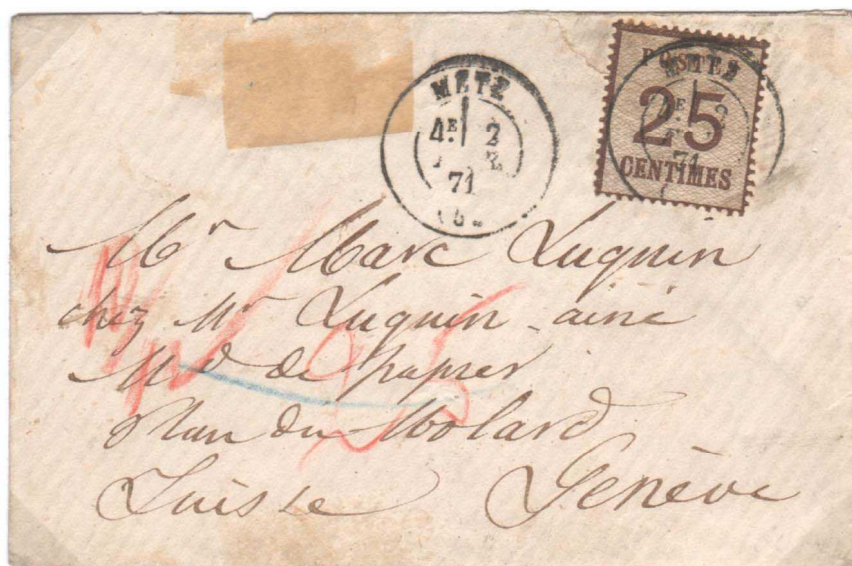 METZ
4E 2
71
POSTES
25
CENTIMES
METZ
71
Mr Marc Luquin
chez Mr Luquin ainé
Md de papier
du Molard
Suisse Genève